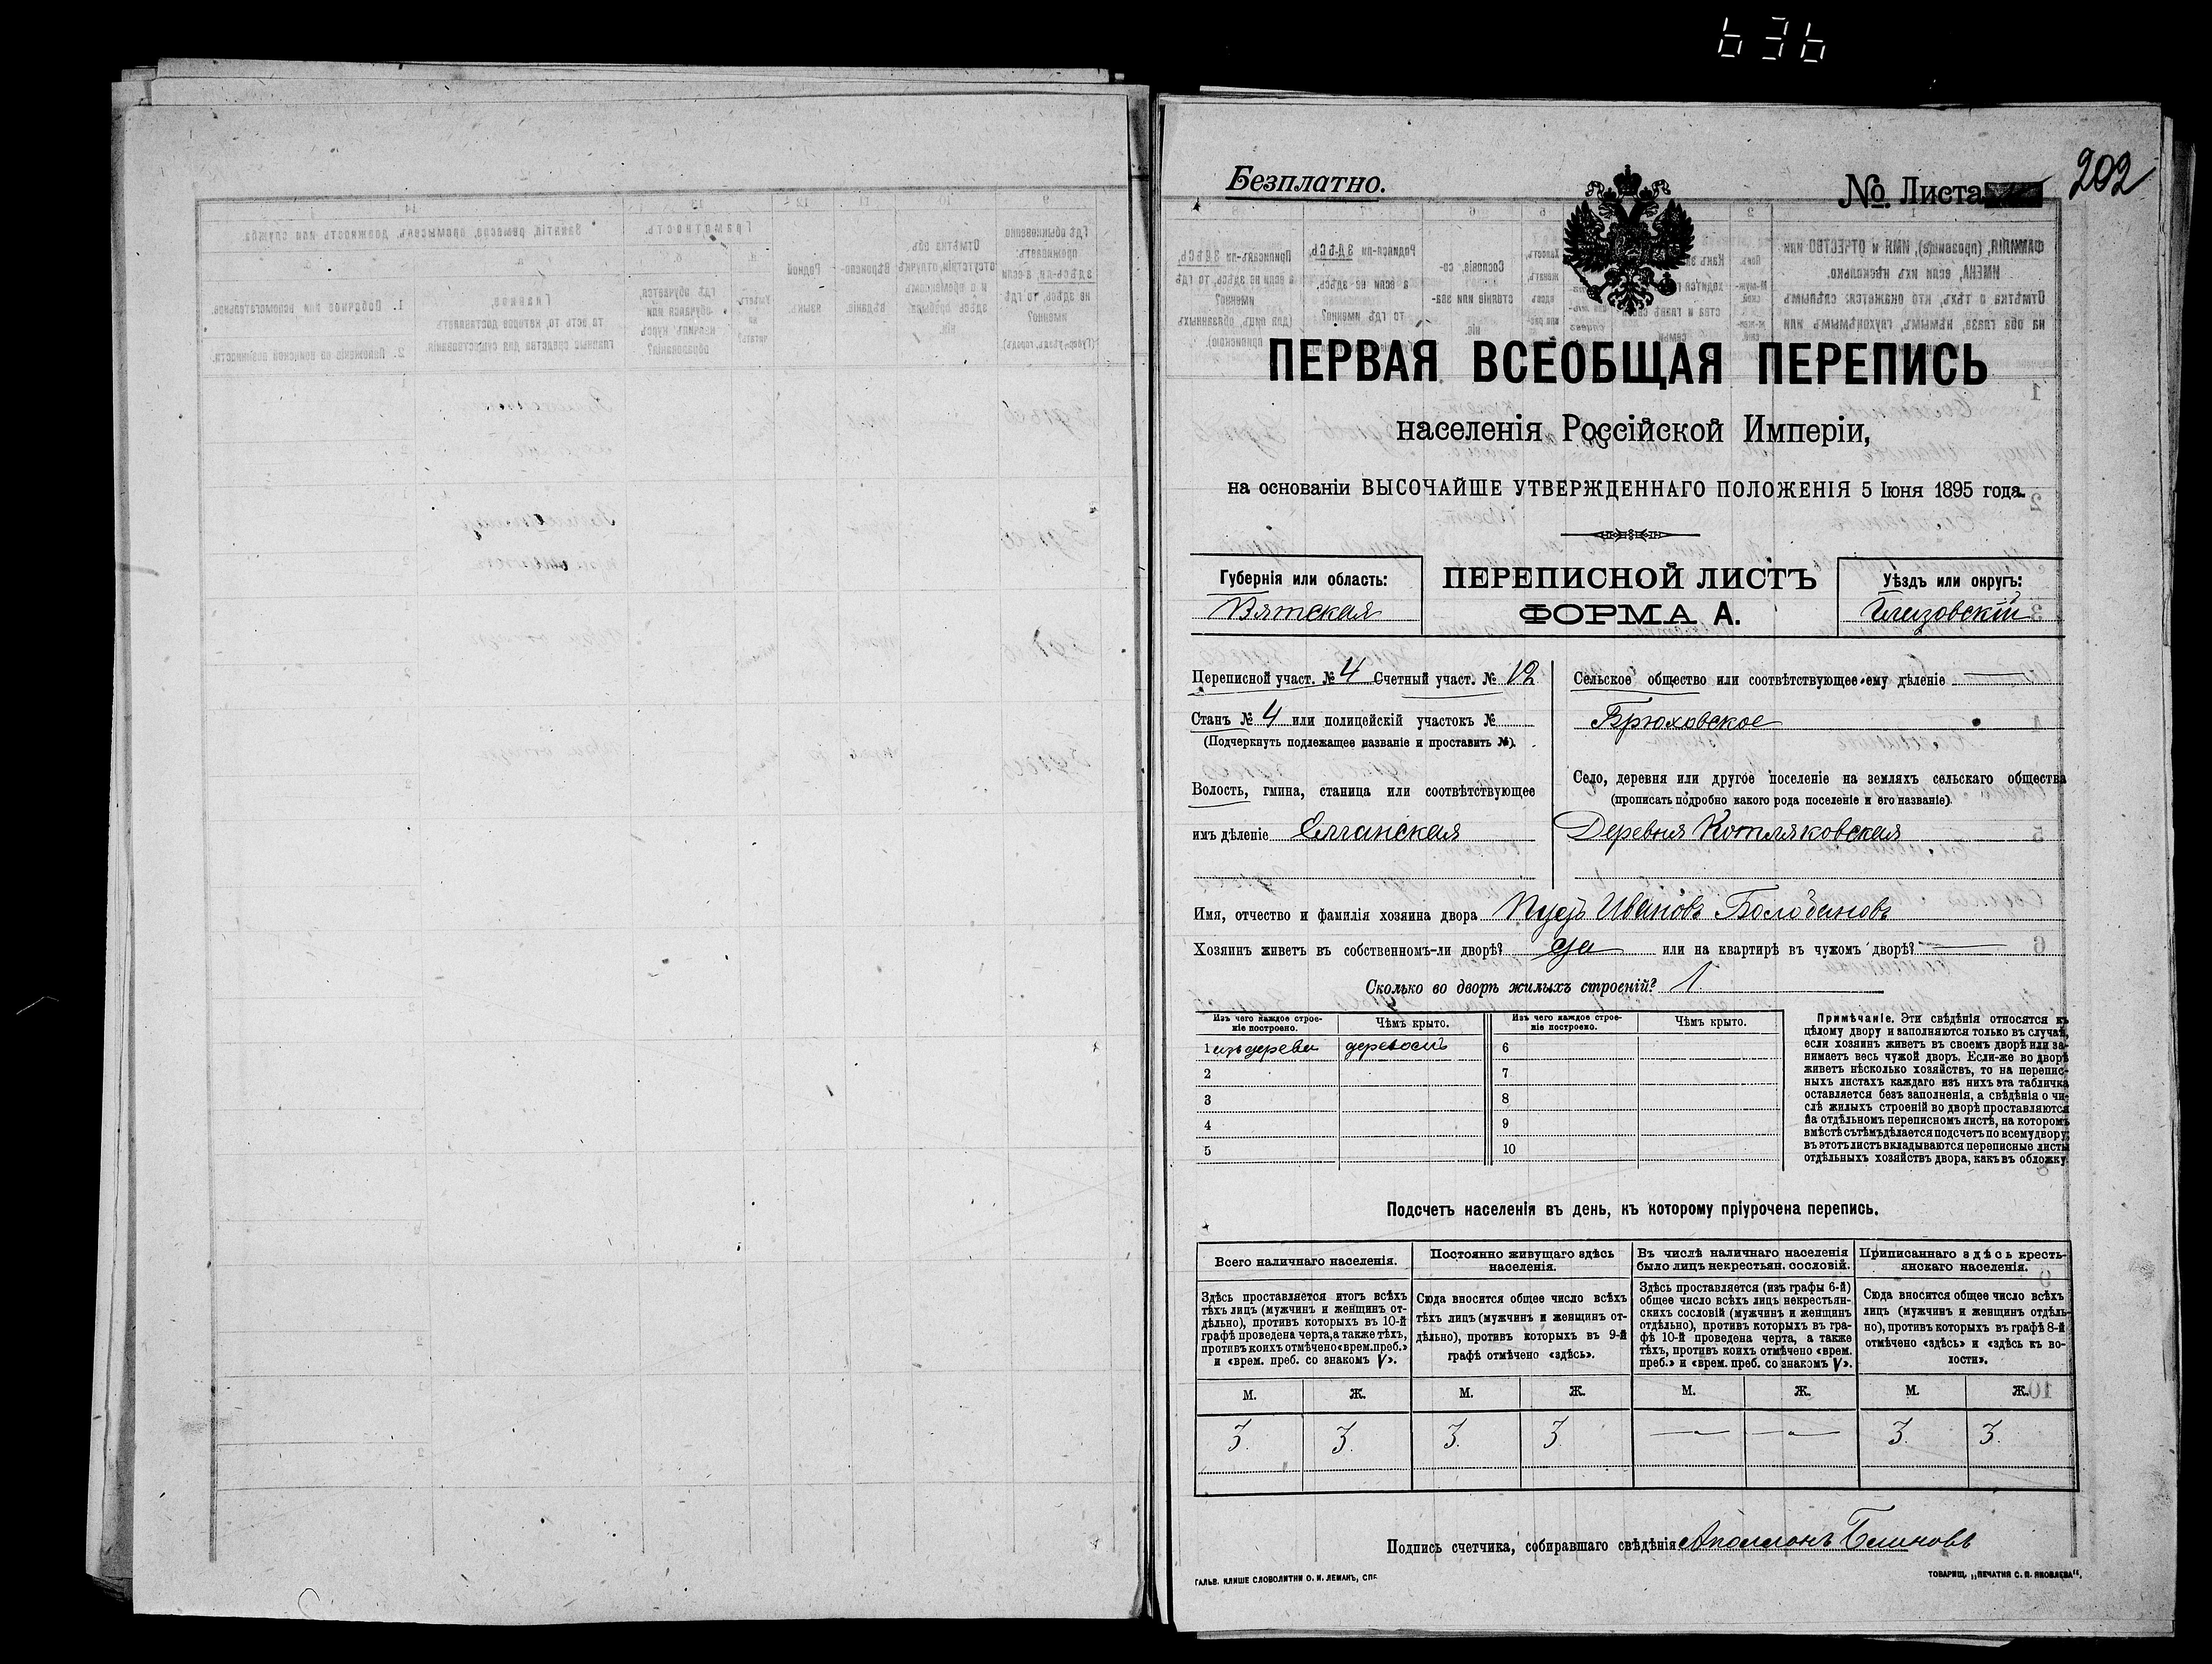 636
Безплатно.
№ Листа
202
ПЕРВАЯ ВСЕОБЩАЯ ПЕРЕПИСЬ
населенія Россійской Имперіи,
на основаніи ВЫСОЧАЙШЕ УТВЕРЖДЕННАГО ПОЛОЖЕНІЯ 5 Іюня 1895 года.
Губернія или область:
Вятская
ПЕРЕПИСНОЙ ЛИСТЪ
ФОРМА А.
Уѣздъ или округъ:
Глазовскій
Переписной участ. № 4 Счетный участ. № 12
Станъ № 4 или полицейскій участокъ №
(Подчеркнуть подлежащее названіе и проставить №).
Волость, гмина, станица или соотвѣтствующее
имъ дѣленіе Елганская
Сельское общество или соотвѣтствующее ему дѣленіе
Брюховское
Село, деревня или другое поселеніе на земляхъ сельскаго общества
(прописать подробно какого рода поселеніе и его названіе).
Деревня Котляковская
Имя, отчество и фамилія хозяина двора Пудъ Ивановъ Болобановъ
Хозяинъ живетъ въ собственномъ-ли дворѣ? да или на квартирѣ въ чужомъ дворѣ? —
Сколько во дворѣ жилыхъ строеній? 1
Изъ чего каждое строе-
ніе построено.
Чѣмъ крыто.
Изъ чего каждое строе-
ніе построено.
Чѣмъ крыто.
1 изъ дерева деревомъ 6
2 7
3 8
4 9
5 10
Примѣчаніе. Эти свѣдѣнія относятся къ
цѣлому двору и заполняются только въ случаѣ,
если хозяинъ живетъ въ своемъ дворѣ или за-
нимаетъ весь чужой дворъ. Если-же во дворѣ
живетъ нѣсколько хозяйствъ, то на перепис-
ныхъ листахъ каждаго изъ нихъ эта табличка
оставляется безъ заполненія, а свѣдѣнія о чи-
слѣ жилыхъ строеній во дворѣ проставляются
на отдѣльномъ переписномъ листѣ, на которомъ
вмѣстѣ съ тѣмъ дѣлается подсчетъ по всему двору;
въ этотъ листъ вкладываются переписные листы
отдѣльныхъ хозяйствъ двора, какъ въ обложку.
Подсчетъ населенія въ день, къ которому пріурочена перепись.
Всего наличнаго населенія.
Здѣсь проставляется итогъ всѣхъ
тѣхъ лицъ (мужчинъ и женщинъ от-
дѣльно), противъ которыхъ въ 10-й
графѣ проведена черта, а также тѣхъ,
противъ коихъ отмѣчено «врем. преб.»
и «врем. преб. со знакомъ V».
Постоянно живущаго здѣсь
населенія.
Сюда вносится общее число всѣхъ
тѣхъ лицъ (мужчинъ и женщинъ от-
дѣльно), противъ которыхъ въ 9-й
графѣ отмѣчено «здѣсь».
Въ числѣ наличнаго населенія
было лицъ некрестьян. сословій.
Здѣсь проставляется (изъ графы 6-й)
общее число всѣхъ лицъ некрестьян-
скихъ сословій (мужчинъ и женщинъ
отдѣльно), противъ которыхъ въ гра-
фѣ 10-й проведена черта, а также
тѣхъ, противъ коихъ отмѣчено «врем.
преб.» и «врем. преб. со знакомъ V».
Приписаннаго здѣсь кресть-
янскаго населенія.
Сюда вносится общее число всѣхъ
лицъ (мужчинъ и женщинъ отдѣль-
но), противъ которыхъ въ графѣ 8-й
отмѣчено «здѣсь» и «здѣсь къ во-
лости».
М. Ж. М. Ж. М. Ж. М. Ж.
3. 3. 3. 3. — — 3. 3.
Подпись счетчика, собиравшаго свѣдѣнія Аполлонъ Блиновъ
ГАЛЬВ. КЛИШЕ СЛОВОЛИТНИ О. И. ЛЕМАНЪ, СПБ.
ТОВАРИЩ. „ПЕЧАТНЯ С. П. ЯКОВЛЕВА“.